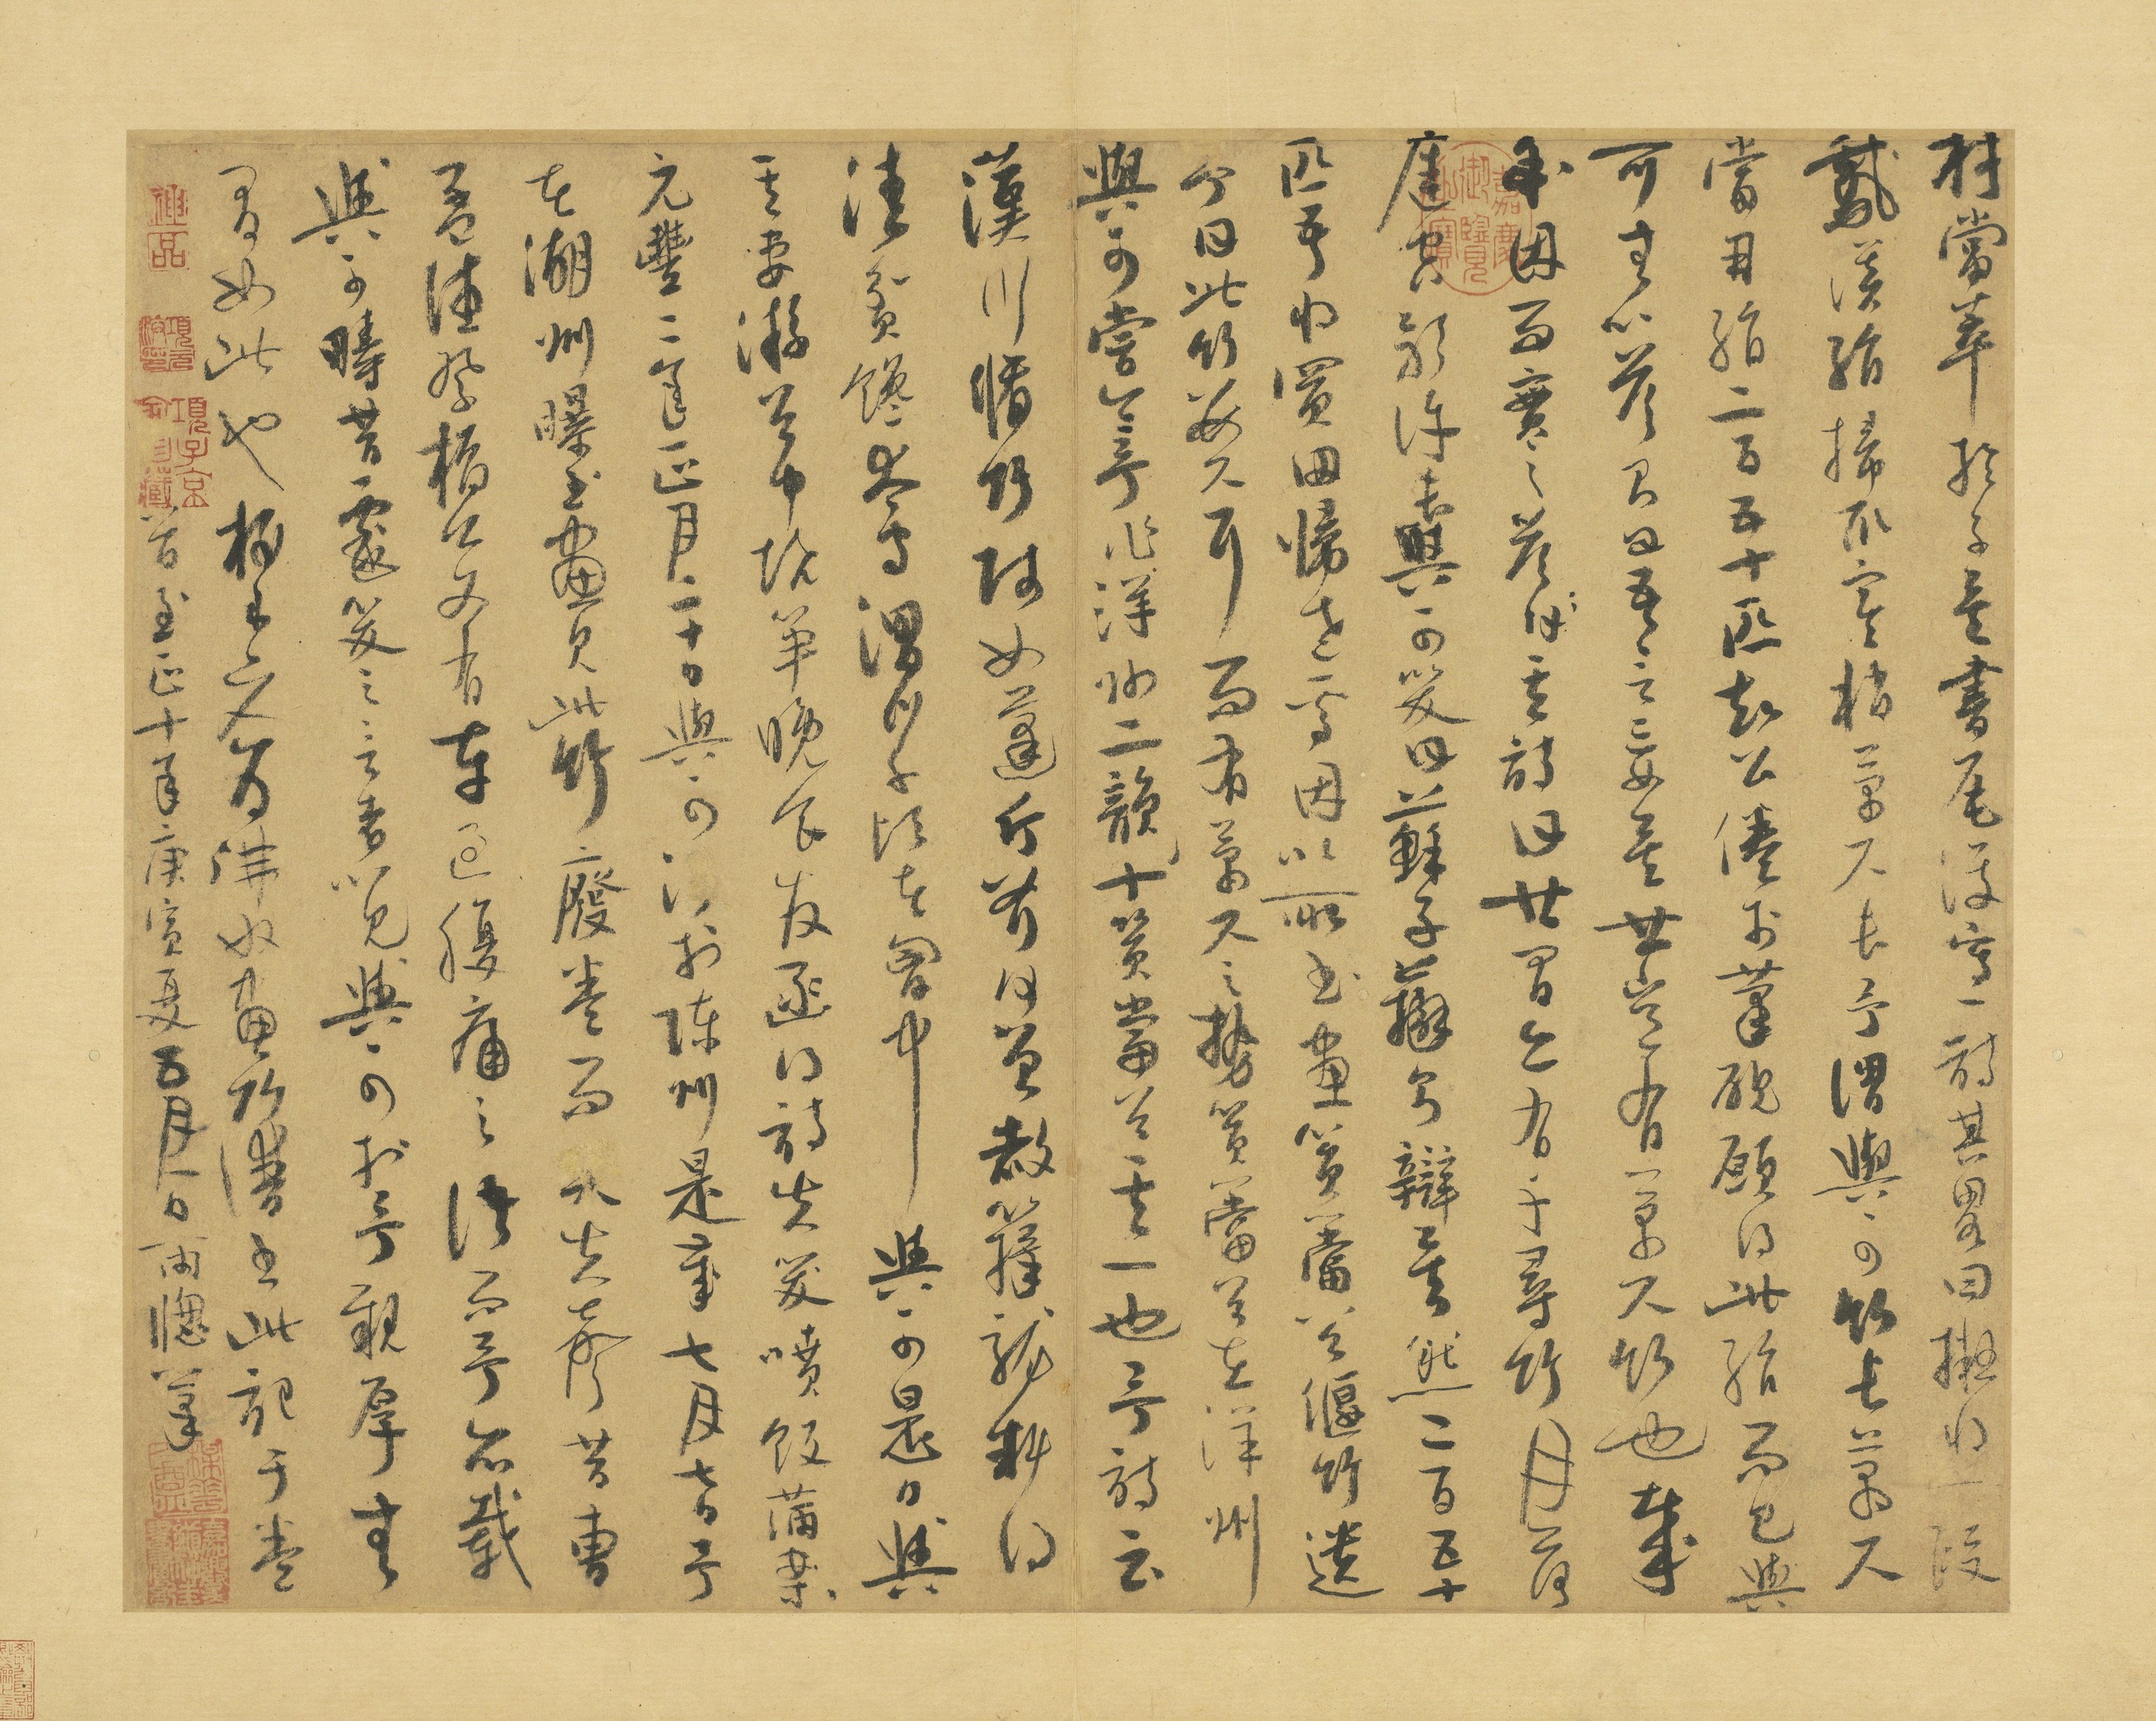 材當萃於子矣書尾復寫一詩其畧曰擬將一段
鵞溪絹掃取寒梢萬尺長予謂與可竹長萬尺
當用絹二百五十匹知公倦於筆硯願得此絹而已與
可無以荅則曰吾言妄矣世豈有萬尺竹也哉
余因而實之荅其詩曰世間亦有千尋竹月落
庭空影許長與可笑曰蘇子辯則辯矣然二百五十
匹吾將買田歸老焉因以所書畫篔簹谷偃竹遺
余曰此竹數尺耳而有萬尺之勢篔簹谷在洋州
與可嘗令予作洋州二韻十篔簹谷其一也予詩云
漢川脩竹賤如蓬斤斧何曾赦籜龍料得
清貧饞太守渭川千畝在胷中與可是日與
其妻遊谷中燒筍晚食發函得詩失笑噴飯滿案
元豐二年正月二十日與可沒於陳州是歲七月七日予
在湖州曝書畫見此竹廢卷而哭失聲昔曹
孟德祭橋公文有車過腹痛之語而予亦載
與可疇昔戲笑之言者以見與可於予親厚無
間如此也梅爲佛奴畫竹譜書此記于卷
首至正十年庚寅夏五月一日雨窗筆
嘉慶御覽之寶
神品
項元汴印
項子京家珍藏